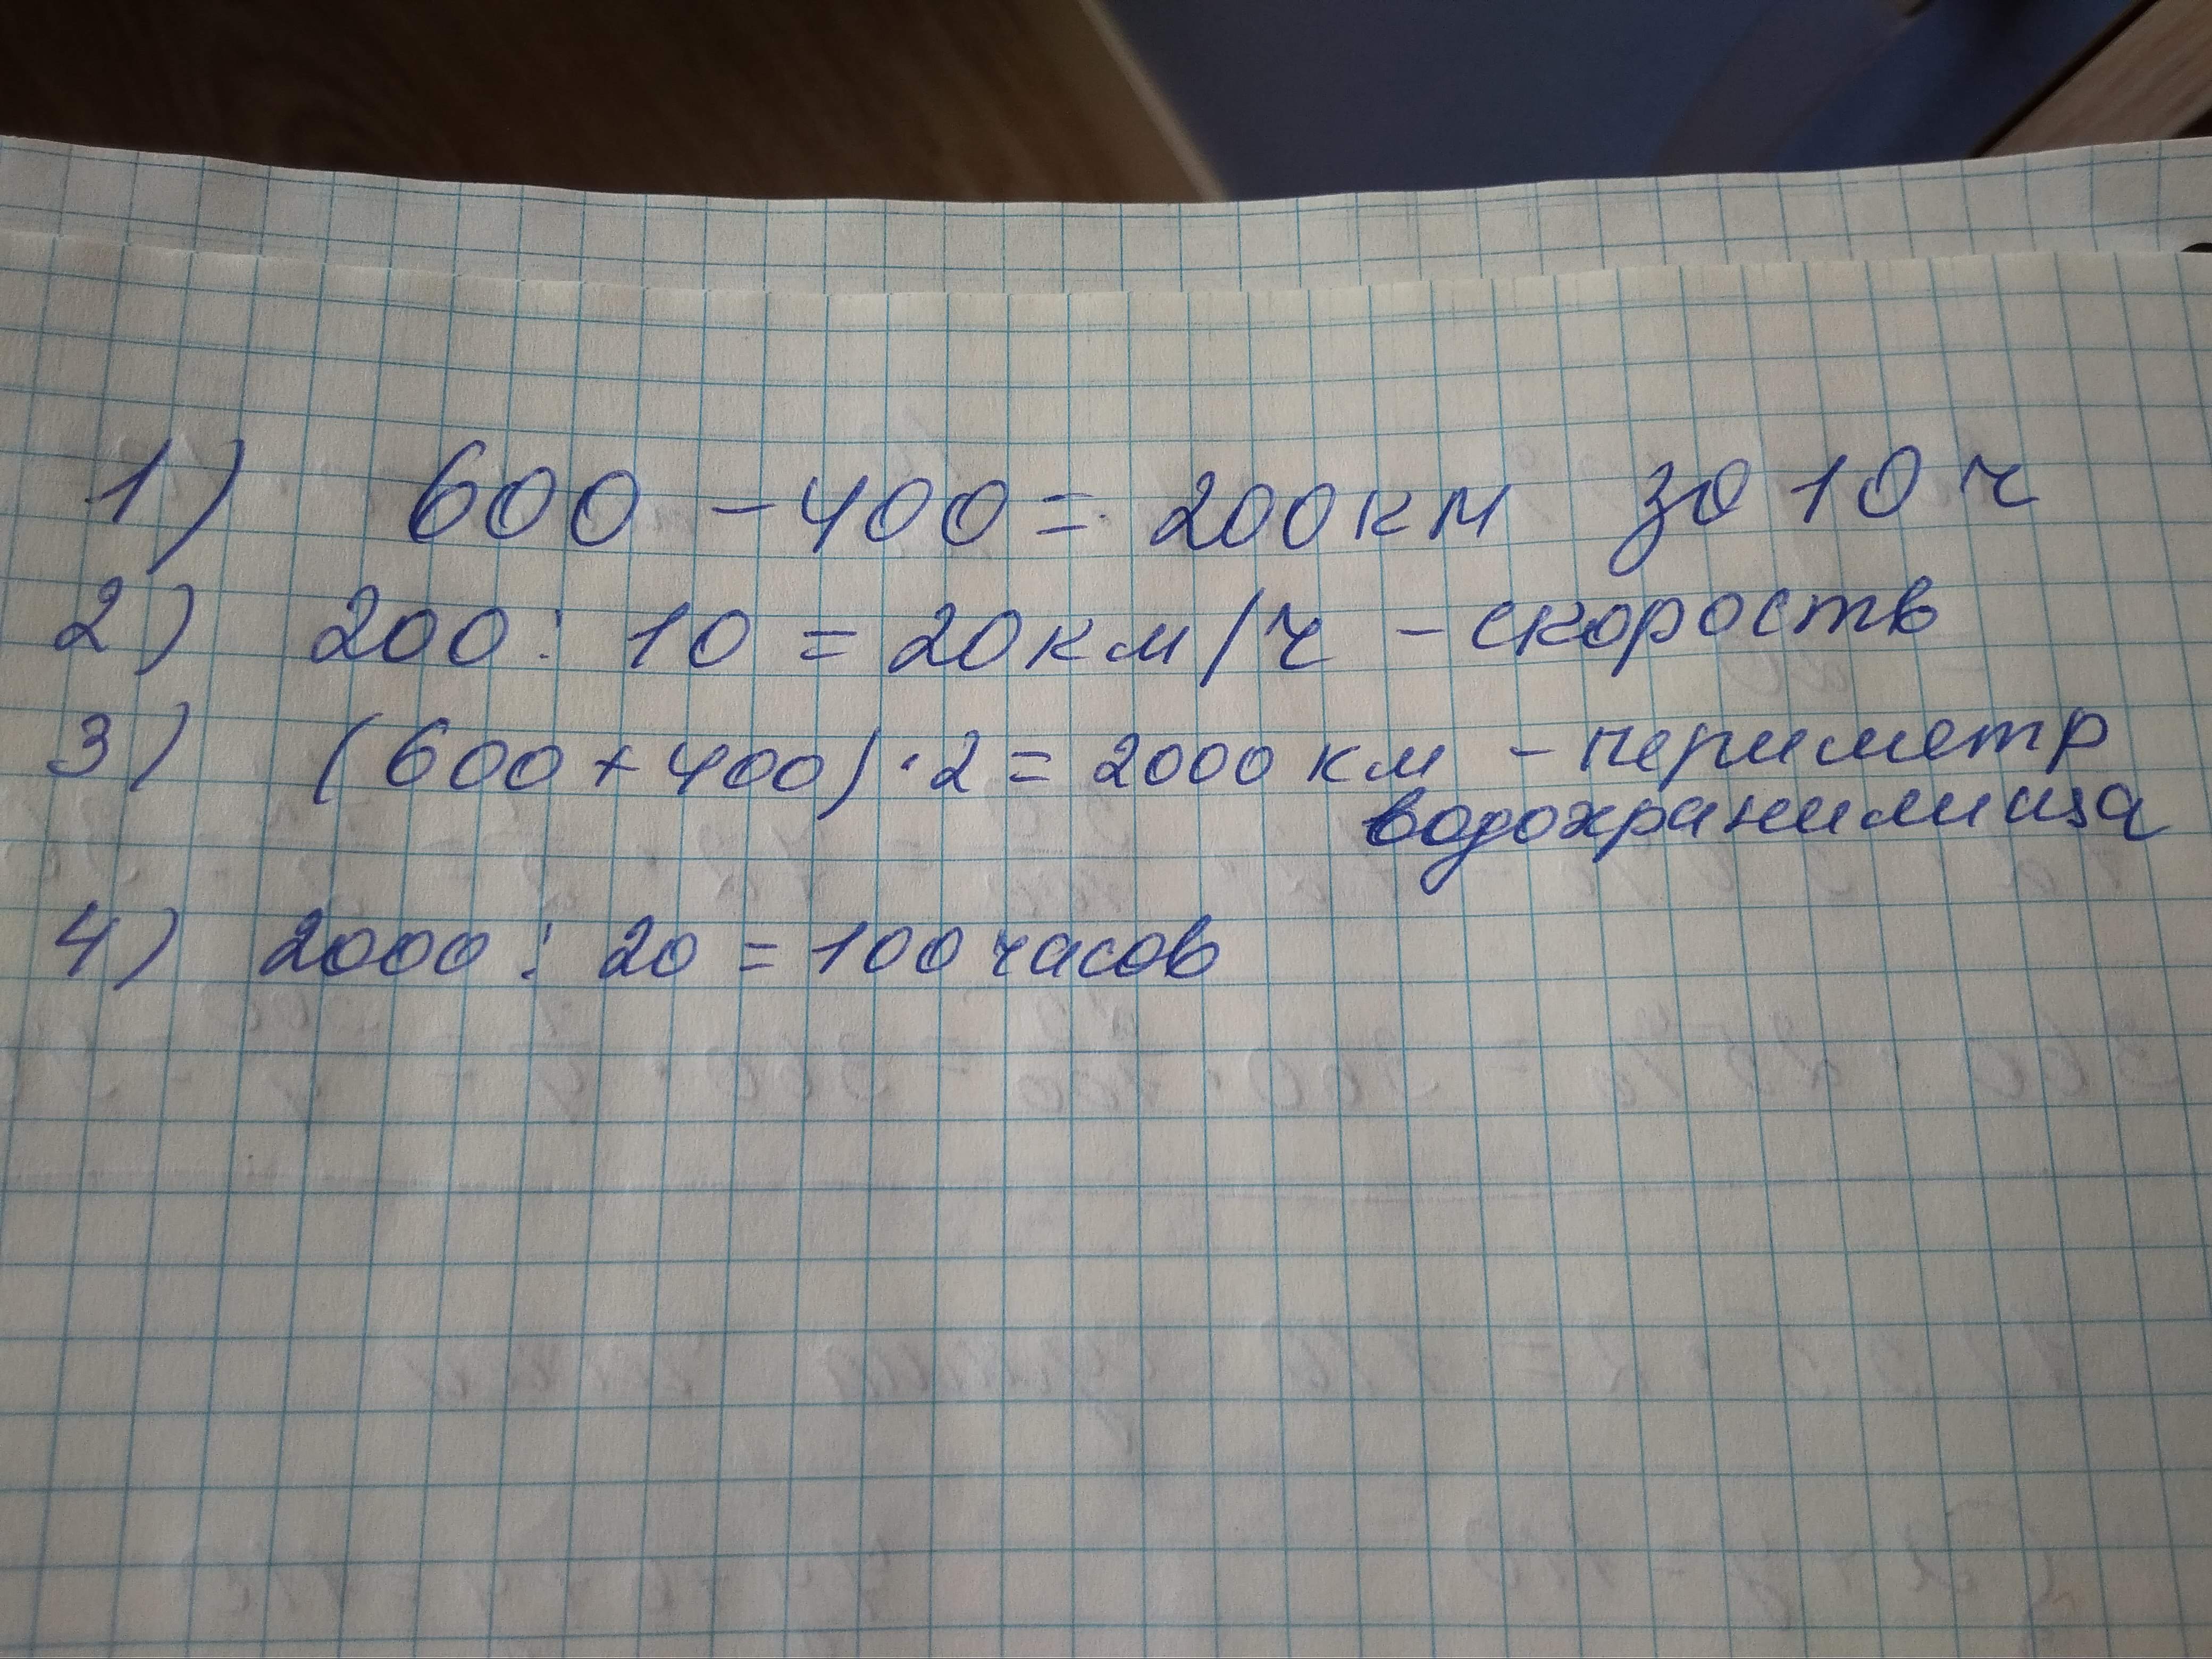 1) 600 - 400 = 200 км за 10 ч
2) 200 : 10 = 20 км/ч - скорость
3) (600 + 400) · 2 = 2000 км - периметр
водохранилища
4) 2000 : 20 = 100 часов